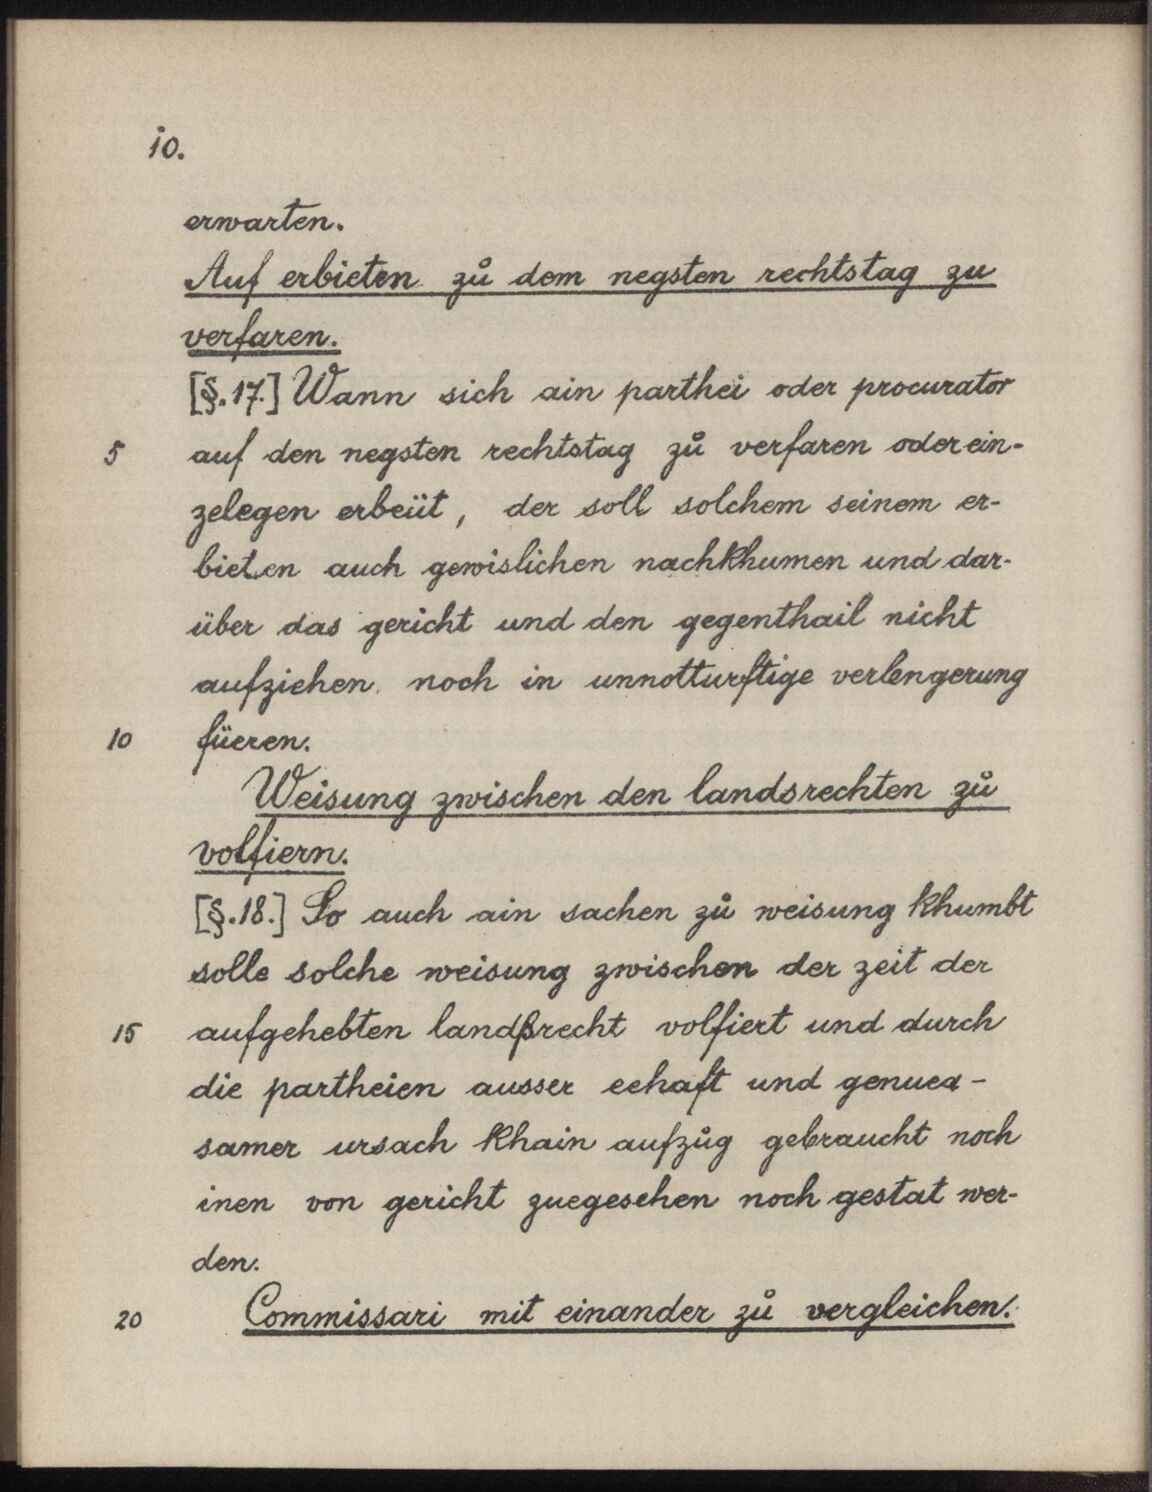 10.
erwarten.
Auf erbieten zů dem negsten rechtstag zu
verfaren.
[§.17.] Wann sich ain parthei oder procurator
5 auf den negsten rechtstag zů verfaren oder ein-
zelegen erbeüt, der soll solchem seinem er-
bieten auch gewislichen nachkhumen und dar-
über das gericht und den gegenthail nicht
aufziehen noch in unnotturftige verlengerung
10 füeren.
Weisung zwischen den landsrechten zů
volfiern.
[§.18.] So auch ain sachen zů weisung khumbt
solle solche weisung zwischen der zeit der
15 aufgehebten landßrecht volfiert und durch
die partheien ausser eehaft und genuea-
samer ursach khain aufzůg gebraucht noch
inen von gericht zuegesehen noch gestat wer-
den.
20 Commissari mit einander zů vergleichen.